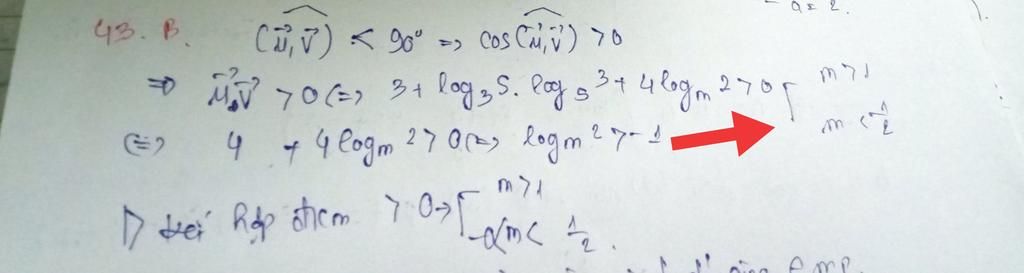 a = 2.
43. B. (u⃗, v⃗) < 90° => cos(u⃗, v⃗) > 0
=> u⃗.v⃗ > 0 <=> 3 + log₃5. log₅3 + 4logₘ2 > 0 [ m > 1
m < 1/2
<=> 4 + 4logₘ2 > 0 <=> logₘ2 > -1
hợp đkm > 0 -> [ m > 1
m < 1/2.